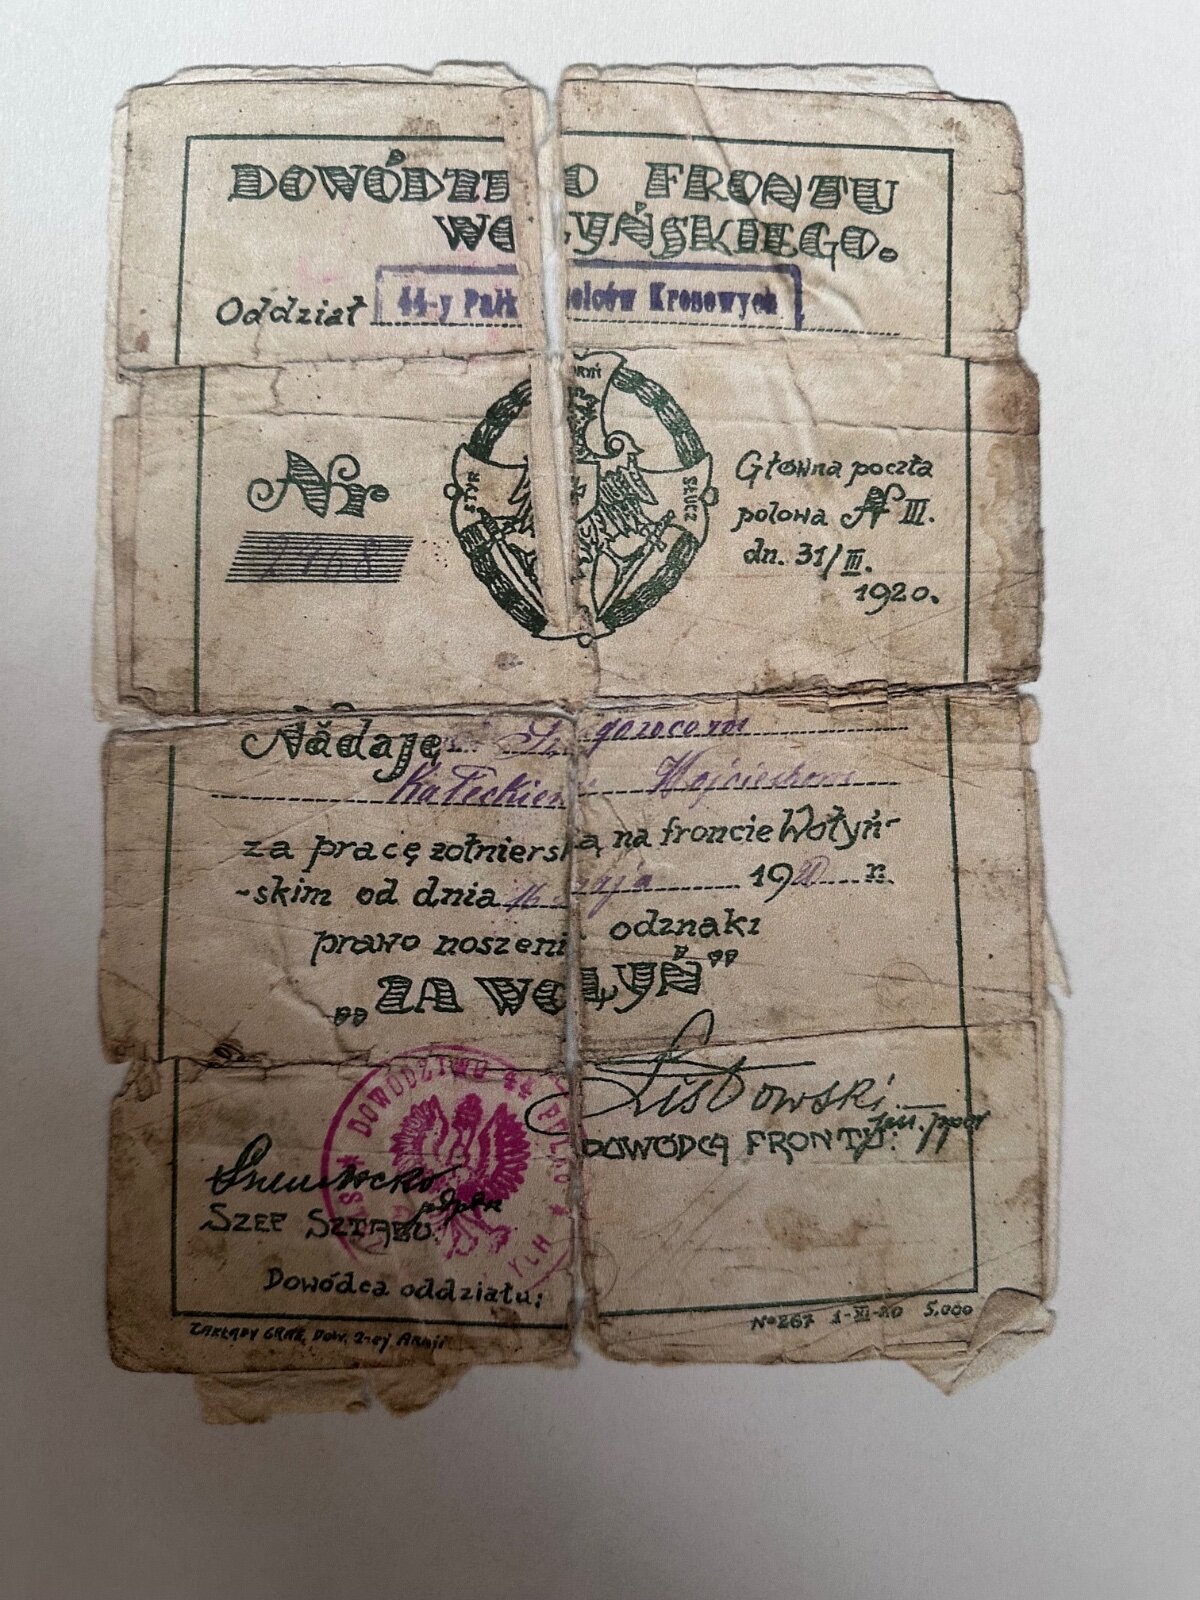 DOWÓDZ O FRONTU
WO YŃSKIEGO.
Oddział 44-y Pułk elców Kresowych
RYŃ
STYR
SŁUCZ
Nr
2468
Główna poczta
polowa № III.
dn. 31/III.
1920.
Nadaję
Kałeckiem Wojciechowi
za pracę żołnierską na froncie Wołyń-
-skim od dnia 16 maja 1920 r.
prawo noszeni odznaki
„ZA WOŁYŃ"
DOWÓDZTWO 44 PUŁKU
Listowski
DOWÓDCA FRONTU:
SZEF SZTABU:
Dowódca oddziału:
ZAKŁADY GRAF. Dow. 2-ej Armji
№ 267 1-XI-20 5.000